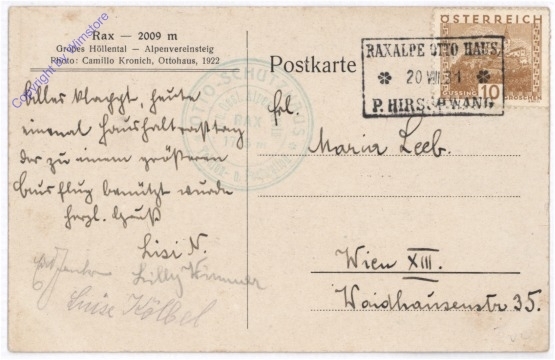 Rax — 2009 m
Großes Höllental — Alpenvereinsteig
Photo: Camillo Kronich, Ottohaus, 1922
Copyright by Wimstore
Postkarte
ÖSTERREICH
10
GÜSSING
GROSCHEN
RAXALPE OTTO HAUS
20 VII 31
P. HIRSCHWANG
OTTO-SCHUTZHAUS
RAX
Alles klappt, heute
einmal Haushaltungstag
der zu einem größeren
Ausflug benützt wurde
herzl. Gruß
Lisi N.
Lilly
Luise Kölbel
Frl.
Maria Leeb.
Wien XIII.
Waidhausenstr 35.